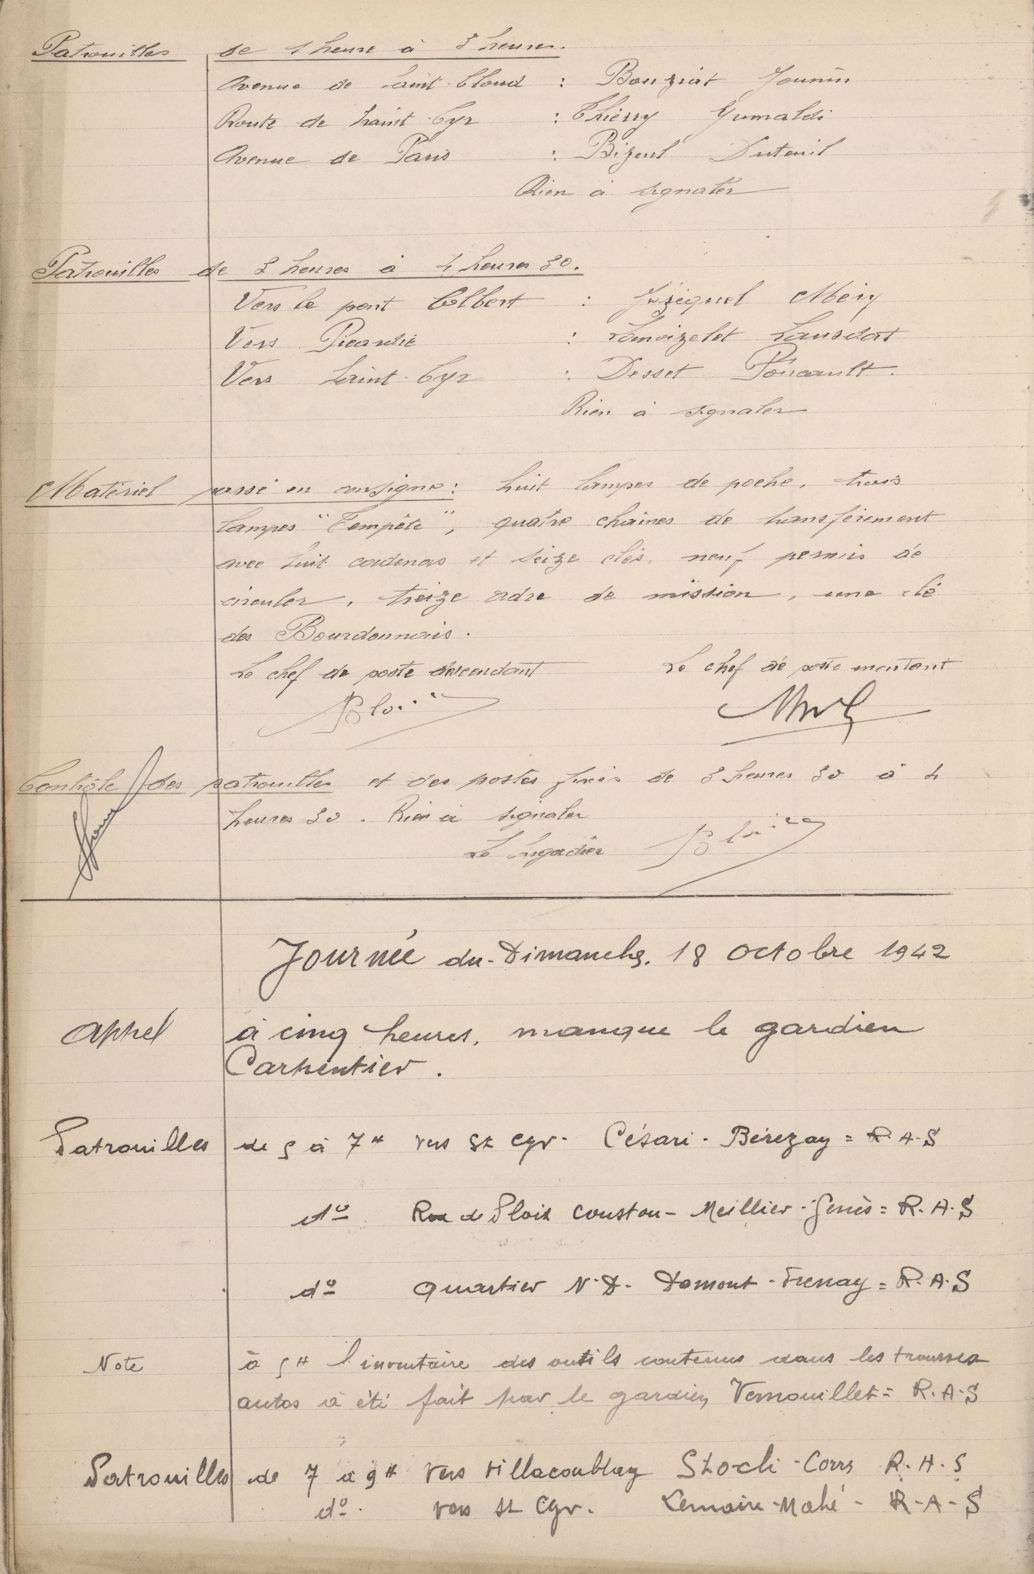 Patrouilles de 1 heure à 3 heures.
Avenue de Saint-Cloud : Bouziat Jounin
Route de Saint Cyr : Thierry Grimaldi
Avenue de Paris : Bizeul Duteuil
Rien à signaler
Patrouilles de 3 heures à 4 heures 30.
Vers le pont Colbert : Jézéquel Méry
Vers Picardie : Lamoizelet Lansdat
Vers Saint-Cyr : Desset Foucault.
Rien à signaler
Matériel passé en consigne : huit lampes de poche, trois
lampes "Tempête", quatre chaînes de transfèrement
avec huit cadenas et seize clés, neuf permis de
circuler, treize ordre de mission, une clé
des Bourdonnais.
Le chef de poste descendant Le chef de poste montant
Contrôle des patrouilles et des postes fixes de 3 heures 30 à 4
heures 30. Rien à signaler
Le brigadier
Journée du Dimanche, 18 Octobre 1942
Appel à cinq heures, manque le gardien
Carpentier.
Patrouilles de 5 à 7H vers St Cyr - Césari - Bérezay = R.A.S
do Rue de Plois Coustou - Meillier - Genès = R.A.S
do Quartier N.D. Domont - Frenay = R.A.S
Note à 5H l'inventaire des outils contenus dans les trousses
autos a été fait par le gardien Vernouillet = R.A.S
Patrouilles de 7 à 9H vers Villacoublay Stocli - Corrs R.A.S
do. vers St Cyr. Lemaire - Mahé - R-A-S